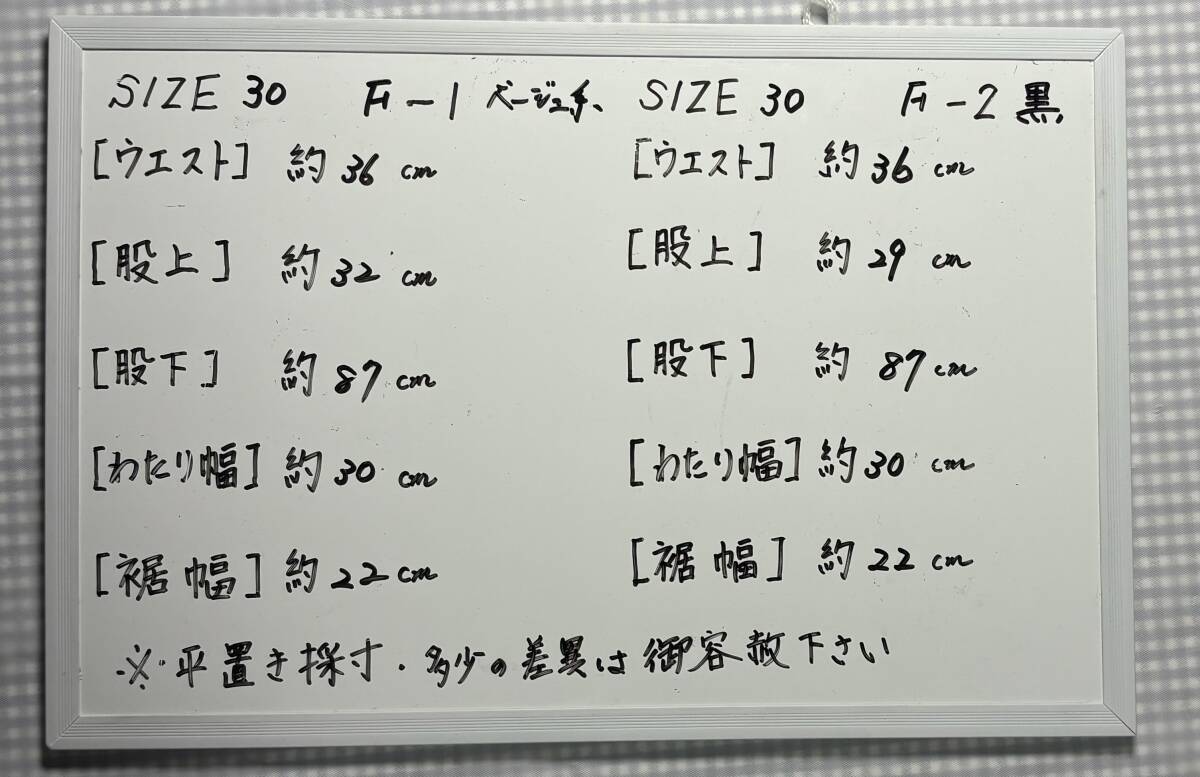 SIZE 30 F-1 ベージュ系、 SIZE 30 F-2 黒
[ウエスト] 約 36 cm [ウエスト] 約 36 cm
[股上] 約 32 cm [股上] 約 29 cm
[股下] 約 87 cm [股下] 約 87 cm
[わたり幅] 約 30 cm [わたり幅] 約 30 cm
[裾幅] 約 22 cm [裾幅] 約 22 cm
※平置き採寸・多少の差異は御容赦下さい